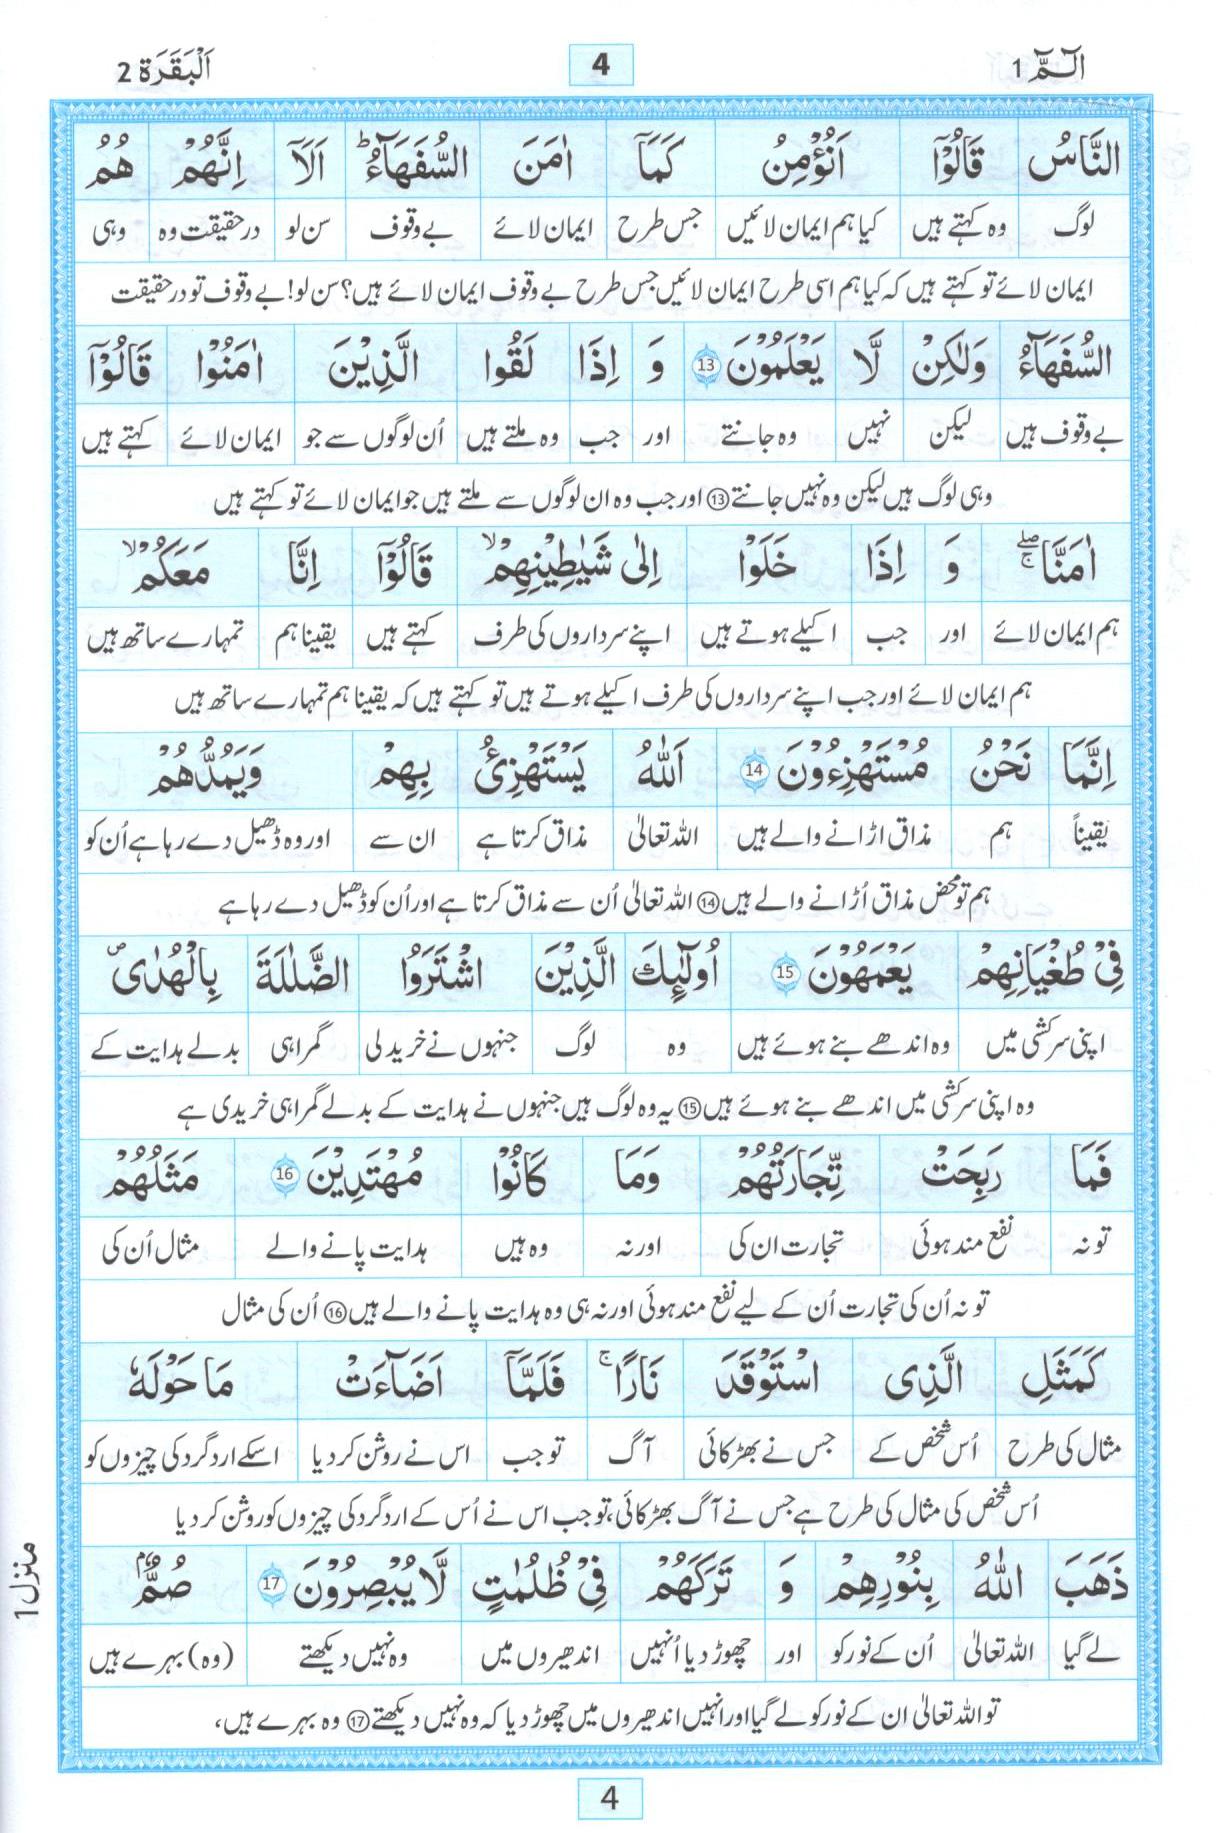 الٓمّٓ 1
4
اَلْبَقَرَة 2
النَّاسُ قَالُوْٓا اَنُؤْمِنُ كَمَآ اٰمَنَ السُّفَهَآءُ ؕ اَلَآ اِنَّهُمْ هُمُ
لوگ وہ کہتے ہیں کیا ہم ایمان لائیں جس طرح ایمان لائے بے وقوف سن لو درحقیقت وہ وہی
ایمان لائے تو کہتے ہیں کہ کیا ہم اسی طرح ایمان لائیں جس طرح بے وقوف ایمان لائے ہیں؟ سن لو! بے وقوف تو درحقیقت
السُّفَهَآءُ وَلٰكِنْ لَّا يَعْلَمُوْنَ 13 وَ اِذَا لَقُوا الَّذِيْنَ اٰمَنُوْا قَالُوْٓا
بے وقوف ہیں لیکن نہیں وہ جانتے اور جب وہ ملتے ہیں اُن لوگوں سے جو ایمان لائے کہتے ہیں
وہی لوگ ہیں لیکن وہ نہیں جانتے ⑬ اور جب وہ ان لوگوں سے ملتے ہیں جو ایمان لائے تو کہتے ہیں
اٰمَنَّا ۖۚ وَ اِذَا خَلَوْا اِلٰى شَيٰطِيْنِهِمْ ۙ قَالُوْٓا اِنَّا مَعَكُمْ ۙ
ہم ایمان لائے اور جب اکیلے ہوتے ہیں اپنے سرداروں کی طرف کہتے ہیں یقینا ہم تمہارے ساتھ ہیں
ہم ایمان لائے اور جب اپنے سرداروں کی طرف اکیلے ہوتے ہیں تو کہتے ہیں کہ یقینا ہم تمہارے ساتھ ہیں
اِنَّمَا نَحْنُ مُسْتَهْزِءُوْنَ 14 اَللّٰهُ يَسْتَهْزِئُ بِهِمْ وَيَمُدُّهُمْ
یقیناً ہم مذاق اڑانے والے ہیں اللہ تعالیٰ مذاق کرتا ہے ان سے اور وہ ڈھیل دے رہا ہے اُن کو
ہم تو محض مذاق اُڑانے والے ہیں ⑭ اللہ تعالیٰ اُن سے مذاق کرتا ہے اور اُن کو ڈھیل دے رہا ہے
فِيْ طُغْيَانِهِمْ يَعْمَهُوْنَ 15 اُولٰٓئِكَ الَّذِيْنَ اشْتَرَوُا الضَّلٰلَةَ بِالْهُدٰى ۪
اپنی سرکشی میں وہ اندھے بنے ہوئے ہیں وہ لوگ جنہوں نے خرید لی گمراہی بدلے ہدایت کے
وہ اپنی سرکشی میں اندھے بنے ہوئے ہیں ⑮ یہ وہ لوگ ہیں جنہوں نے ہدایت کے بدلے گمراہی خریدی ہے
فَمَا رَبِحَتْ تِّجَارَتُهُمْ وَمَا كَانُوْا مُهْتَدِيْنَ 16 مَثَلُهُمْ
تو نہ نفع مند ہوئی تجارت ان کی اور نہ وہ ہیں ہدایت پانے والے مثال اُن کی
تو نہ اُن کی تجارت اُن کے لیے نفع مند ہوئی اور نہ ہی وہ ہدایت پانے والے ہیں ⑯ اُن کی مثال
كَمَثَلِ الَّذِى اسْتَوْقَدَ نَارًا ۚ فَلَمَّآ اَضَآءَتْ مَا حَوْلَهٗ
مثال کی طرح اُس شخص کے جس نے بھڑکائی آگ تو جب اس نے روشن کر دیا اسکے اردگرد کی چیزوں کو
اُس شخص کی مثال کی طرح ہے جس نے آگ بھڑکائی، تو جب اس نے اُس کے اردگرد کی چیزوں کو روشن کر دیا
ذَهَبَ اللّٰهُ بِنُوْرِهِمْ وَ تَرَكَهُمْ فِيْ ظُلُمٰتٍ لَّا يُبْصِرُوْنَ 17 صُمٌّۢ
لے گیا اللہ تعالیٰ اُن کے نور کو اور چھوڑ دیا اُنہیں اندھیروں میں وہ نہیں دیکھتے (وہ) بہرے ہیں
تو اللہ تعالیٰ ان کے نور کو لے گیا اور انہیں اندھیروں میں چھوڑ دیا کہ وہ نہیں دیکھتے ⑰ وہ بہرے ہیں،
منزل 1
4